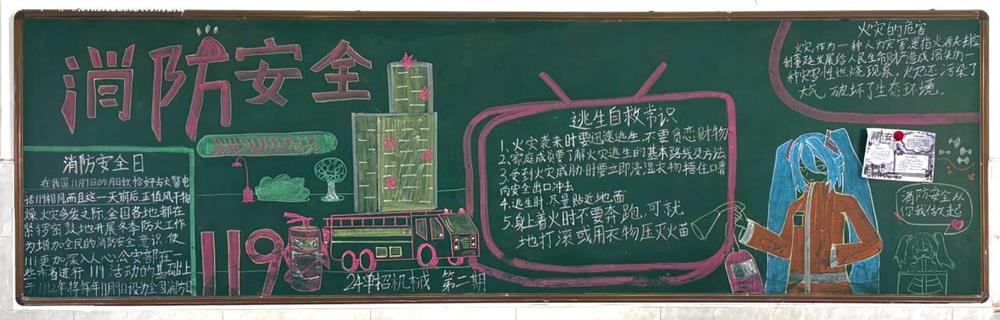 消防安全
消防安全日
在我国11月9日的月日恰好与火警电
话119相同而且这一天前后正值风干物
燥火灾多发之际,全国各地都在
紧锣密鼓地开展冬季防火工作
为增加全民的消防安全意识,使
119更加深入人心公安部在一
些省市进行119活动的基础上
于1992年将每年11月9日设为全国消防日
119
24单招机械 第二期
逃生自救常识
1.火灾袭来时要迅速逃生,不要贪恋财物
2.家庭成员要了解火灾逃生时基本路线及方法
3.受到火灾威胁时要立即浸湿衣物捂住口鼻
向安全出口冲去
4.逃生时,尽量贴近地面
5.身上着火时不要奔跑,可就
地打滚或用衣物压灭火苗
火灾的危害
火灾,作为一种人为灾害是指火源失去控
制蔓延发展给人民生命财产造成损失的一
种灾害性燃烧现象,火灾还污染了
大气,破坏了生态环境。
消防安全从
你我做起